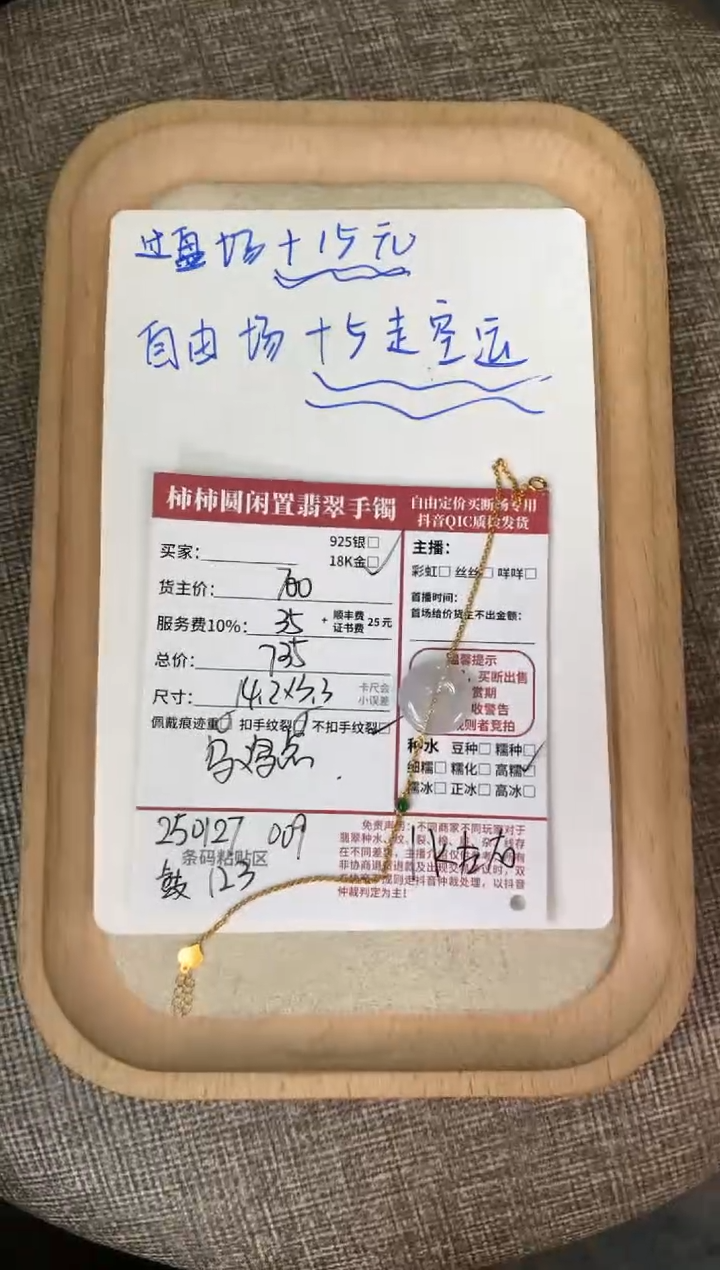 过盘场+15元
自由场+5走空运
柿柿圆闲置翡翠手镯
自由定价买断场专用
抖音QIC质检发货
买家：
925银□
18K金□
货主价：700
服务费10%：35 + 顺丰费 证书费 25元
总价：735
尺寸：14.2×3.3 卡尺会 小误差
佩戴痕迹重□ 扣手纹裂□ 不扣手纹裂□
250127 009
条码粘贴区
123
主播：
彩虹□ 丝丝□ 咩咩□
首播时间：
首场给价货主不出金额：
温馨提示
，买断出售
赏期
收警告
规则者竞拍
种水 豆种□ 糯种□
细糯□ 糯化□ 高糯□
糯冰□ 正冰□ 高冰□
免责声明：不同商家不同玩家对于
翡翠种水
存在不同差异，主播介
仲裁判定为主！